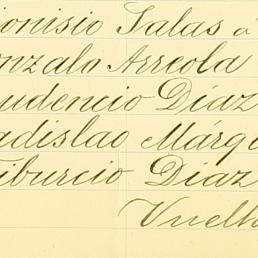 ionisio Salas á
onzalo Arreola
udencio Díaz
adislao Márqu
Tiburcio Díaz
Vuelt